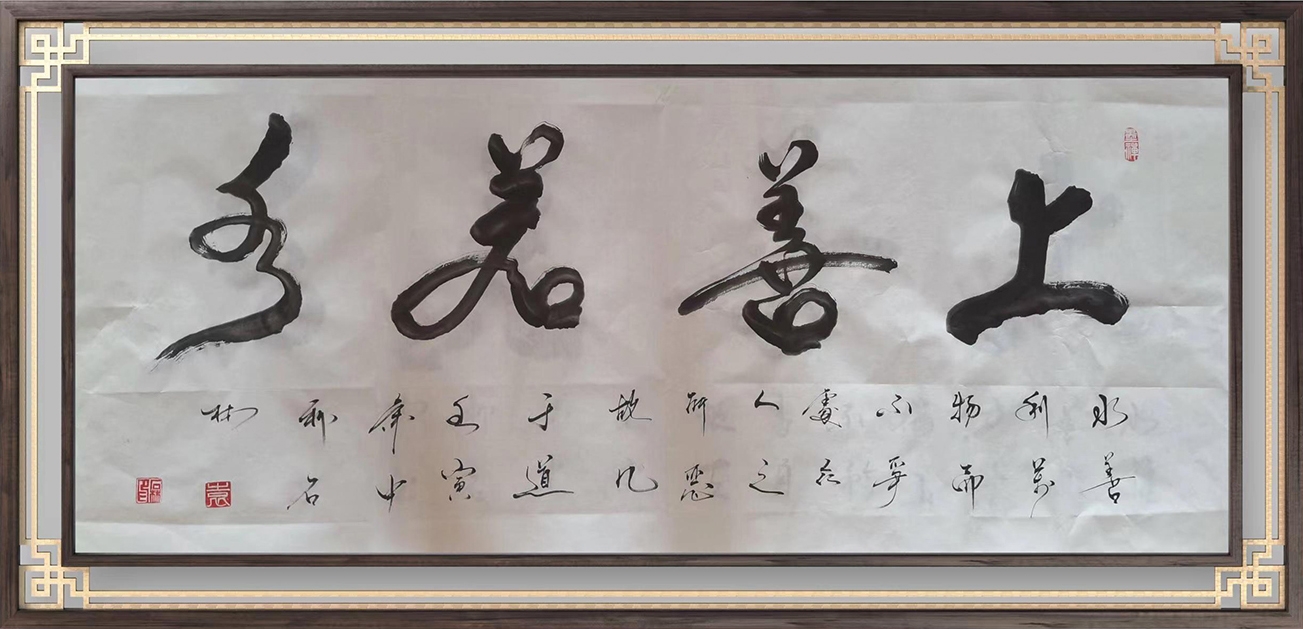 上善若水
水善
利萬
物而
不爭
處众
人之
所惡
故几
于道
壬寅
年中
秋石
林
袁